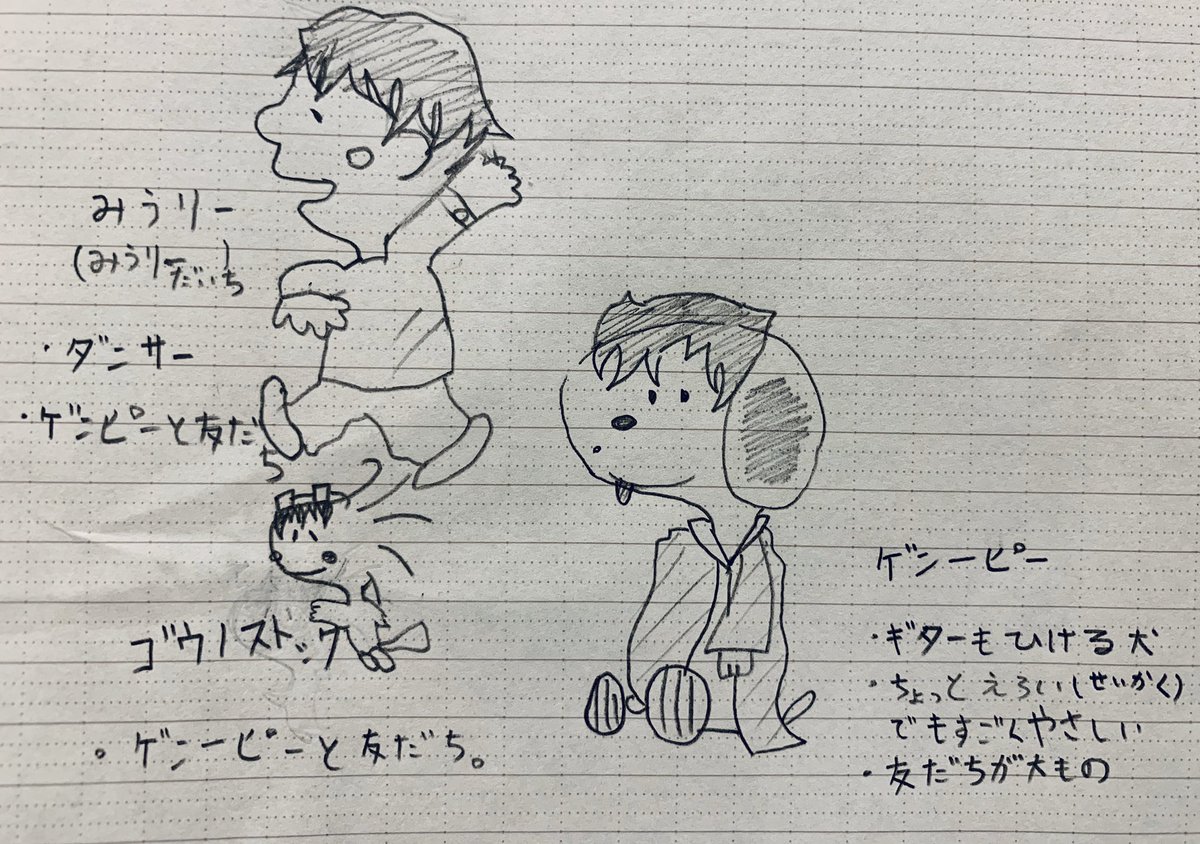 みうりー
(みうりーだいち)
・ダンサー
・ゲンピーと友だち
ゴウノストック
・ゲンーピーと友だち。
ゲンーピー
・ギターもひける犬
・ちょっとえろい(せいかく)
でもすごくやさしい
・友だちが大もの